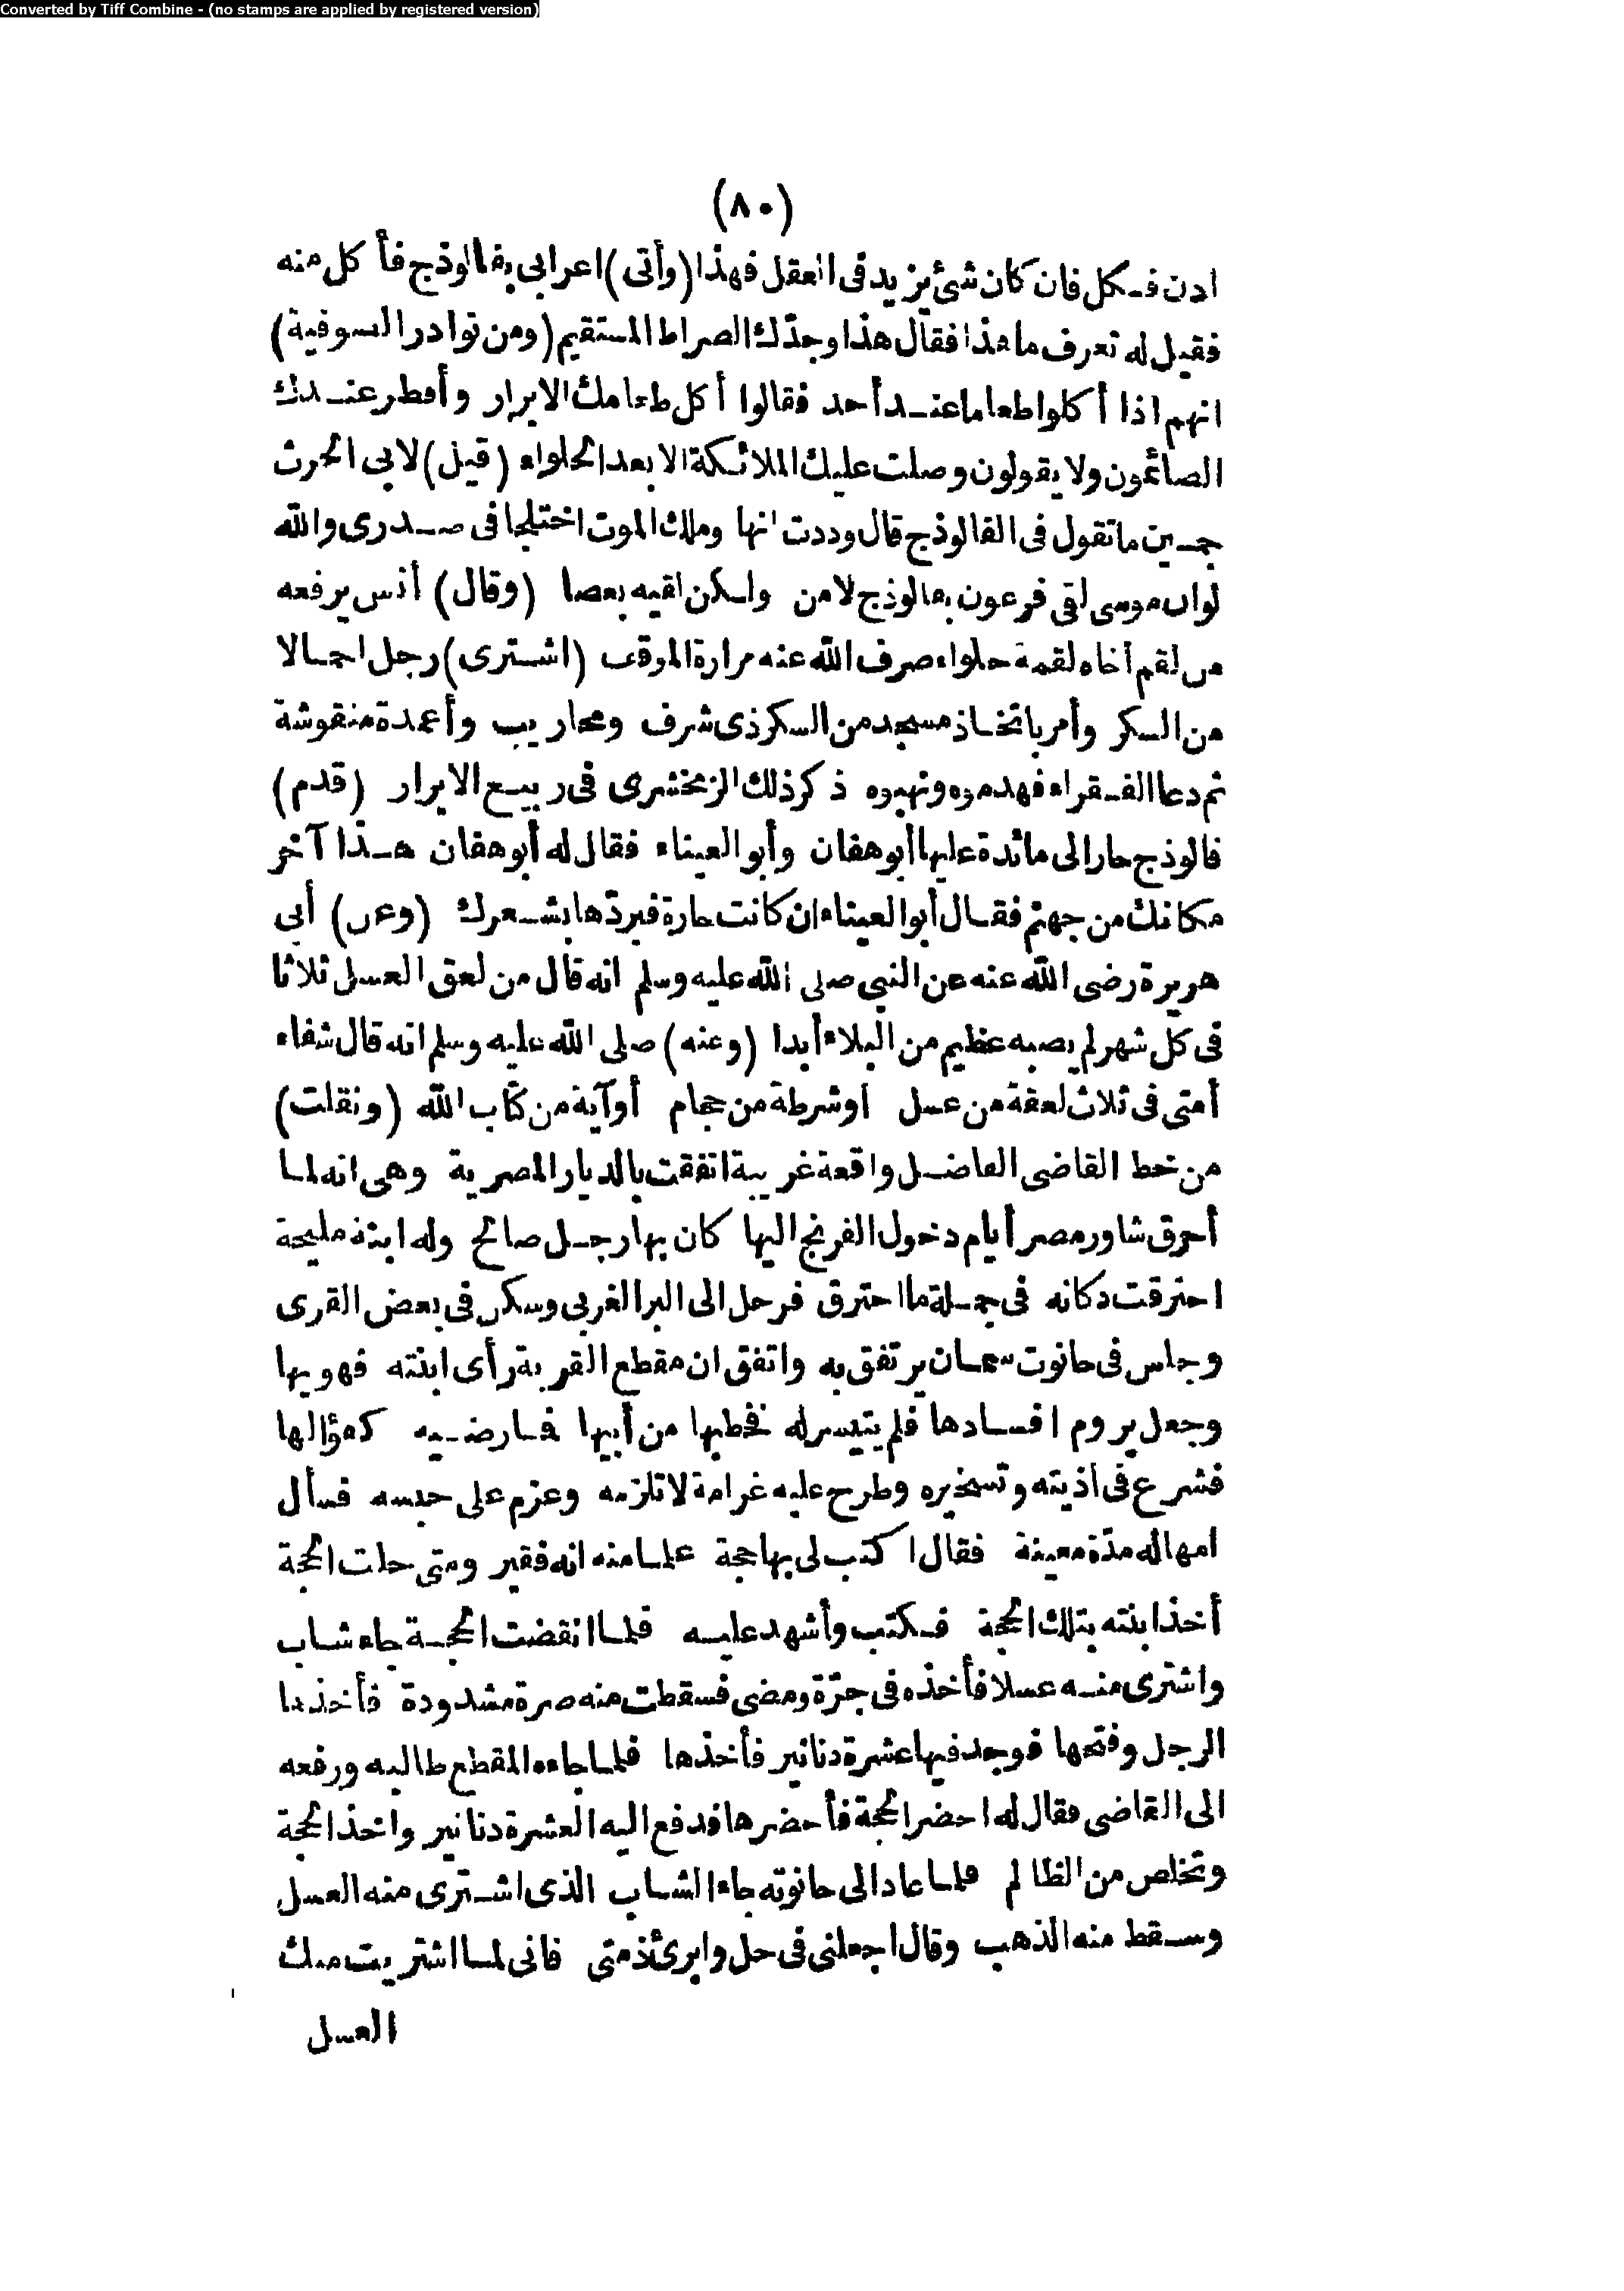 Converted by Tiff Combine - (no stamps are applied by registered version)
(٨٠)
ادن فكل فان كان شئ يزيد فى العقل فهذا (وأتى) اعرابى بفالوذج فأكل منه
فقيل له تعرف ما هذا فقال هذا وجدّك الصراط المستقيم (ومن نوادر السوفية)
انهم اذا أكلوا طعاما عند أحد فقالوا أكل طعامك الابرار وأفطر عندك
الصائمون ولا يقولون وصلت عليك الملائكة الا بعد الحلواء (قيل) لابى الحرث
جمين ما تقول فى الفالوذج قال وددت انها وملك الموت اختلجا فى صدرى والله
لو ان موسى لقى فرعون بفالوذج لا من ولكن لقيه بعصا (وقال) أنس يرفعه
من لقم أخاه لقمة حلواء صرف الله عنه مرارة الموقف (اشترى) رجل احمالا
من السكر وأمر باتخاذ مسجد من السكر ذى شرف ومحاريب وأعمدة منقوشة
ثم دعا الفقراء فهدموه ونهبوه ذكر ذلك الزمخشرى فى ربيع الابرار (قدم)
فالوذج حار الى مائدة عليها أبو هفان وأبو العيناء فقال له أبو هفان هذا آخر
مكانك من جهنم فقال أبو العيناء ان كانت حارة فبردّها بشعرك (وعن) أبى
هريرة رضى الله عنه عن النبى صلى الله عليه وسلم انه قال من لعق العسل ثلاثا
فى كل شهر لم يصبه عظيم من البلاء أبدا (وعنه) صلى الله عليه وسلم انه قال شفاء
أمتى فى ثلاث لعقة من عسل او شرطة من حجام أو آية من كتاب الله (ونقلت)
من خط القاضى الفاضل واقعة غريبة اتفقت بالديار المصرية وهى انه لما
أحرق شاور مصر أيام دخول الفرنج اليها كان بها رجل صالح وله ابنة مليحة
احترقت دكانه فى جملة ما احترق فرحل الى البر الغربى وسكن فى بعض القرى
وجلس فى حانوت سمان يرتفق به واتفق ان مقطع القرية رأى ابنته فهويها
وجعل يروم افسادها فلم يتيسر له فخطبها من أبيها فارضيه كفؤا لها
فشرع فى أذيته وتسخيره وطرح عليه غرامة لا تلزمه وعزم على حبسه فسأل
امهاله مدّة معينة فقال اكتب لى بها حجة علما منه انه فقير ومتى حلت الحجة
أخذ ابنته بتلك الحجة فكتب وأشهد عليه فلما انقضت الحجة جاء شاب
واشترى منه عسلا فأخذه فى جرّة ومضى فسقطت منه صرة مشدودة فأخذها
الرجل وفتحها فوجد فيها عشرة دنانير فأخذها فلما جاءه المقطع طالبه ورفعه
الى القاضى فقال له احضر الحجة فأحضرها فدفع اليه العشرة دنانير واخذ الحجة
وتخلص من الظالم فلما عاد الى حانوته جاء الشاب الذى اشترى منه العسل
وسقط منه الذهب وقال اجعلنى فى حل وابرئ ذمتى فانى لما اشتريت منك
العسل